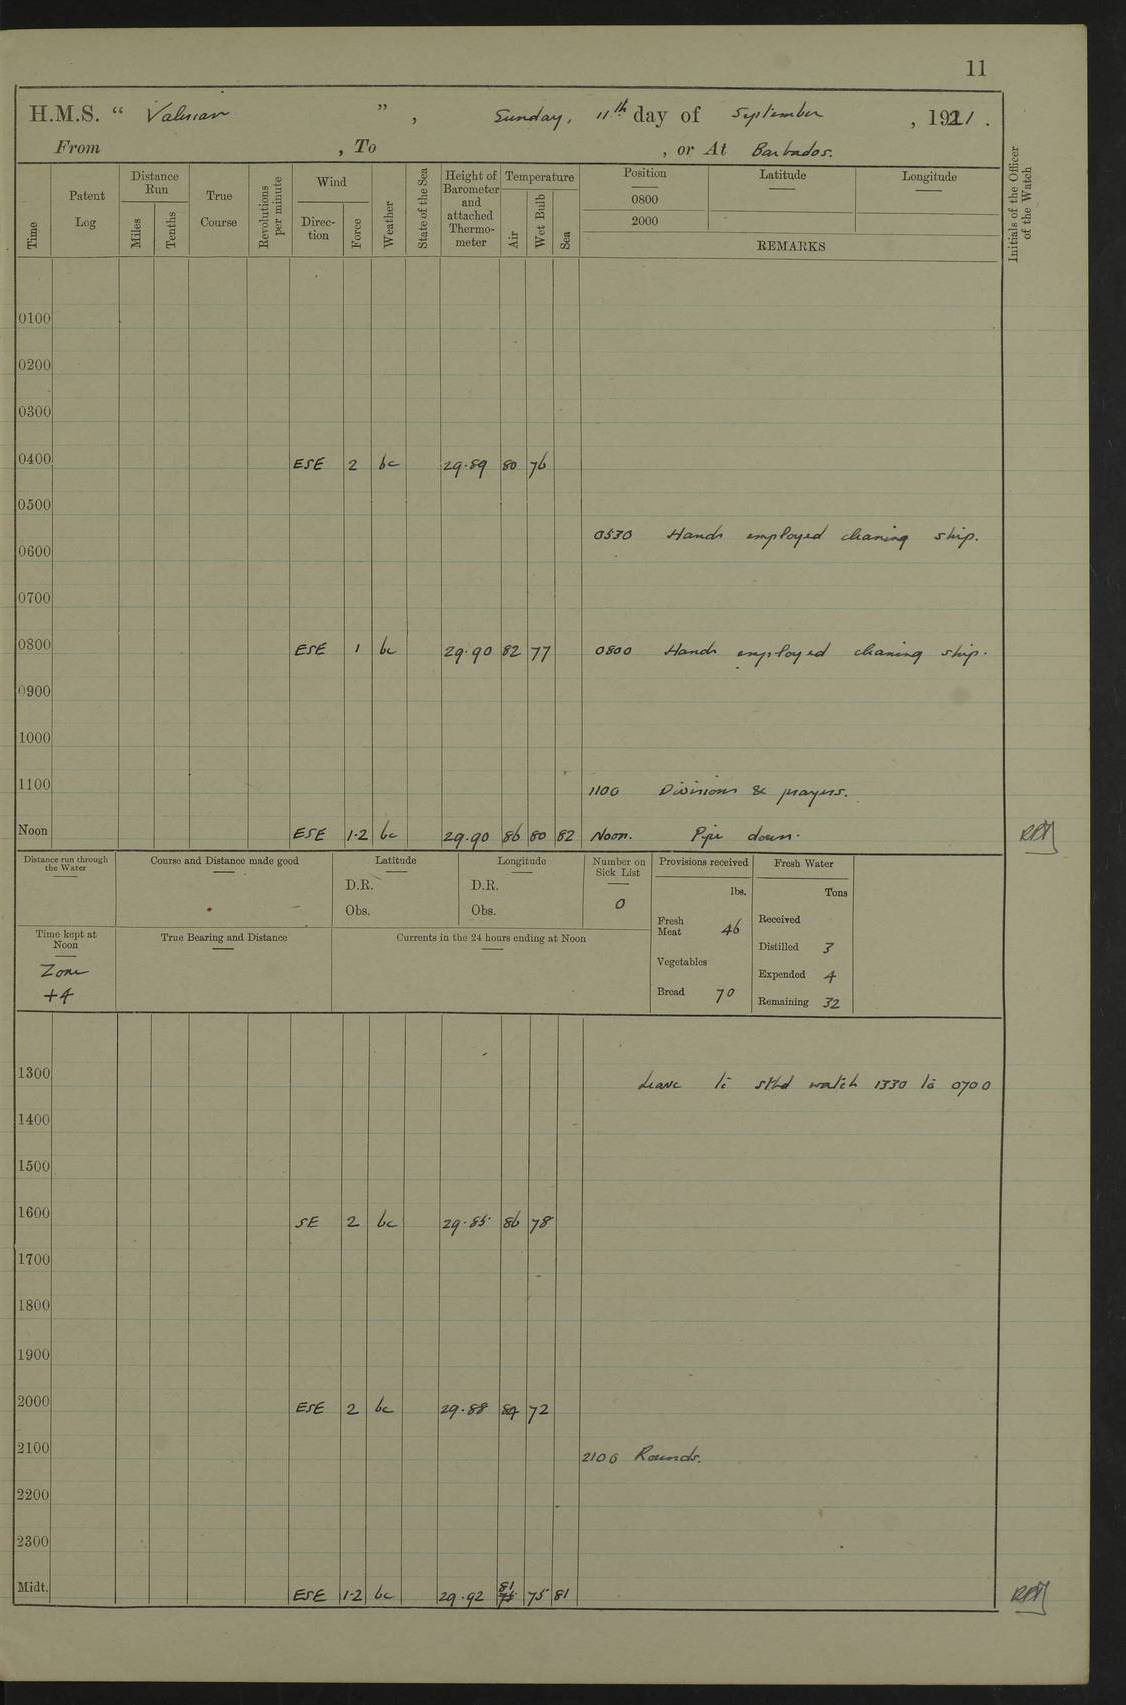 11
H.M.S. “ Valerian ”, Sunday, 11th day of September, 1921.
From , To , or At Barbados.
Time
Patent Log
Distance Run
Miles
Tenths
True Course
Revolutions per minute
Wind
Direction
Force
Weather
State of the Sea
Height of Barometer and attached Thermometer
Temperature
Air
Wet Bulb
Sea
Position
0800
2000
Latitude
Longitude
REMARKS
Initials of the Officer of the Watch
0100
0200
0300
0400 ESE 2 bc 29.89 80 76
0500
0530 Hands employed cleaning ship.
0600
0700
0800 ESE 1 bc 29.90 82 77 0800 Hands employed cleaning ship.
0900
1000
1100 1100 Divisions & prayers.
Noon ESE 1-2 bc 29.90 86 80 82 Noon. Pipe down.
Distance run through the Water
Course and Distance made good
Latitude
D.R.
Obs.
Longitude
D.R.
Obs.
Number on Sick List
0
Provisions received
lbs.
Fresh Meat 46
Vegetables
Bread 70
Fresh Water
Tons
Received
Distilled 3
Expended 4
Remaining 32
Time kept at Noon
Zone
+4
True Bearing and Distance
Currents in the 24 hours ending at Noon
1300 Leave to stbd watch 1330 to 0700
1400
1500
1600 SE 2 bc 29.85 86 78
1700
1800
1900
2000 ESE 2 bc 29.88 84 72
2100 2100 Rounds.
2200
2300
Midt. ESE 1-2 bc 29.92 81 75 81